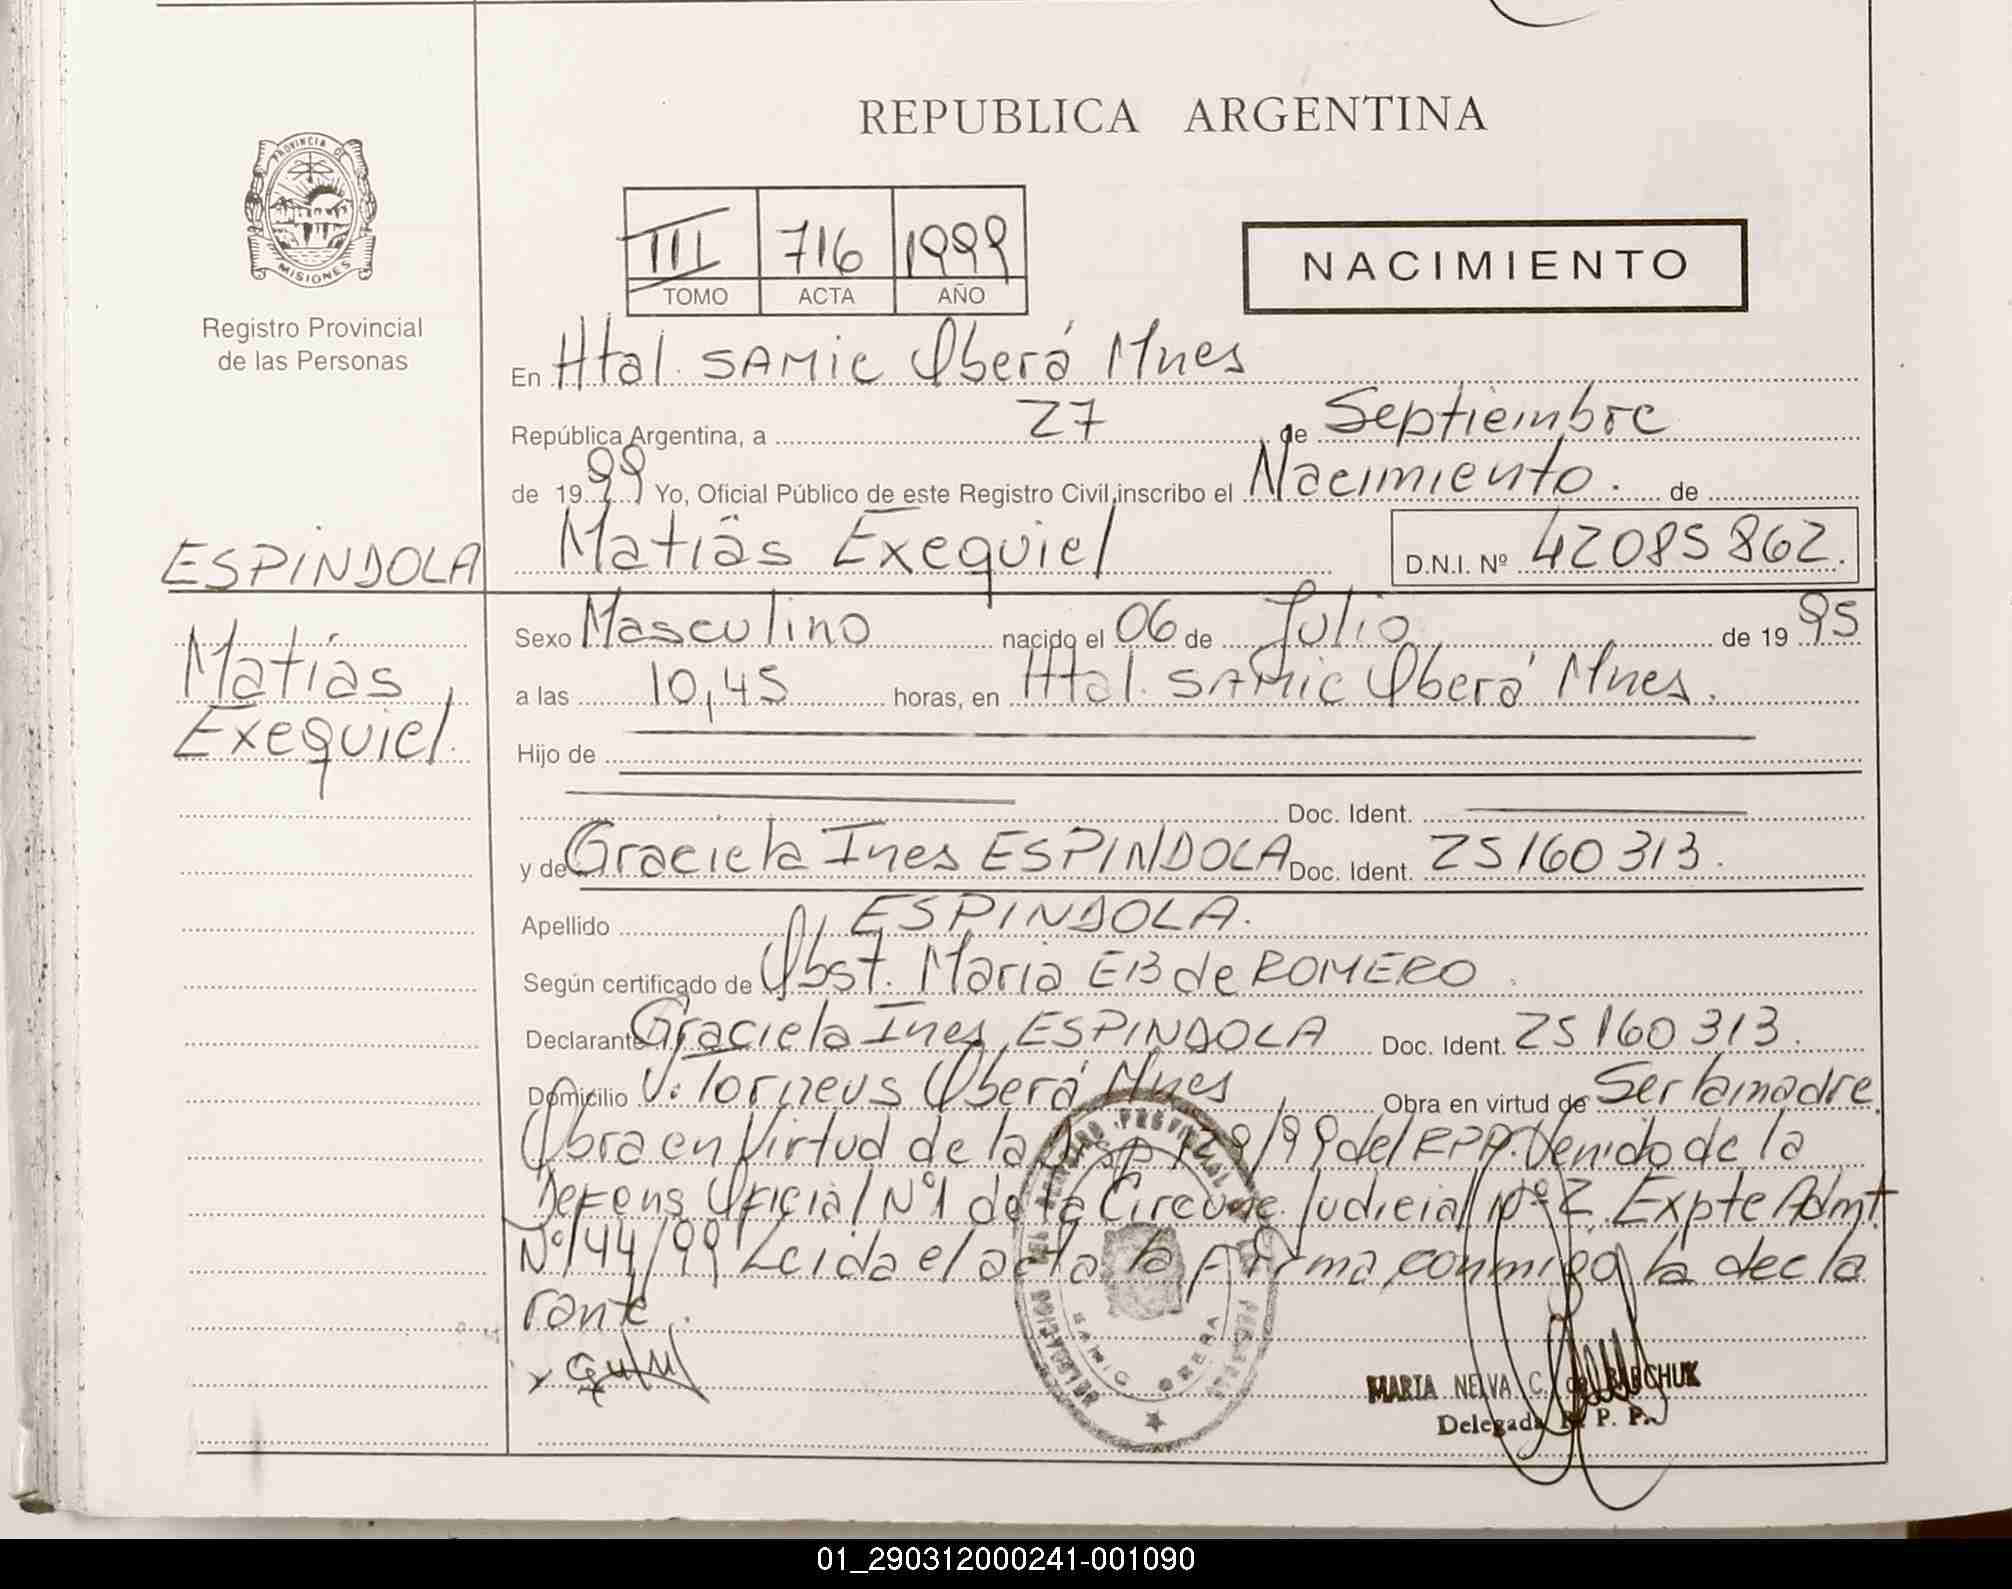 REPUBLICA ARGENTINA
PROVINCIA DE
MISIONES
Registro Provincial
de las Personas
III 716 1999
TOMO ACTA AÑO
NACIMIENTO
En Htal. SAMIC Oberá Mnes
República Argentina, a 27 de Septiembre
de 1999 Yo, Oficial Público de este Registro Civil, inscribo el Nacimiento. de
ESPINDOLA
Matías Exequiel D.N.I. Nº 42085862.
Matías
Exequiel.
Sexo Masculino nacido el 06 de Julio de 1995
a las 10,45 horas, en Htal. SAMIC Oberá Mnes.
Hijo de
Doc. Ident.
y de Graciela Ines ESPINDOLA Doc. Ident. 25160313.
Apellido ESPINDOLA.
Según certificado de Obst. Maria EB de ROMERO
Declarante Graciela Ines ESPINDOLA Doc. Ident. 25160313.
Domicilio V. Torneus Oberá Mnes Obra en virtud de Ser la madre.
Obra en Virtud de la Disp 128/99 del RPP. Venido de la
Defens Oficial Nº1 de la Circunc. Judicial Nº 2. Expte Admt
Nº 144/99 Leida el acta la firma conmigo la decla
rante.
SAMIC OBERA
MARIA NELVA C. de BABCHUK
Delegada R. P. P.
01_290312000241-001090